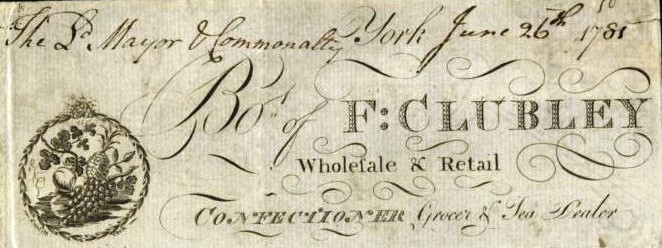 The Ld. Mayor & Commonalty York June 26th 1785
Bot. of F: CLUBLEY
Wholeſale & Retail
CONFECTIONER Grocer & Tea Dealer